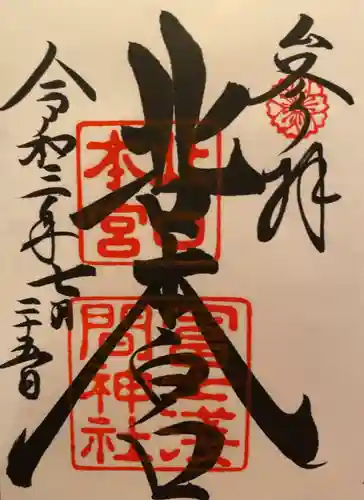 参拝
北口本宮
令和三年七月
二十五日
北口
本宮
冨士浅
間神社